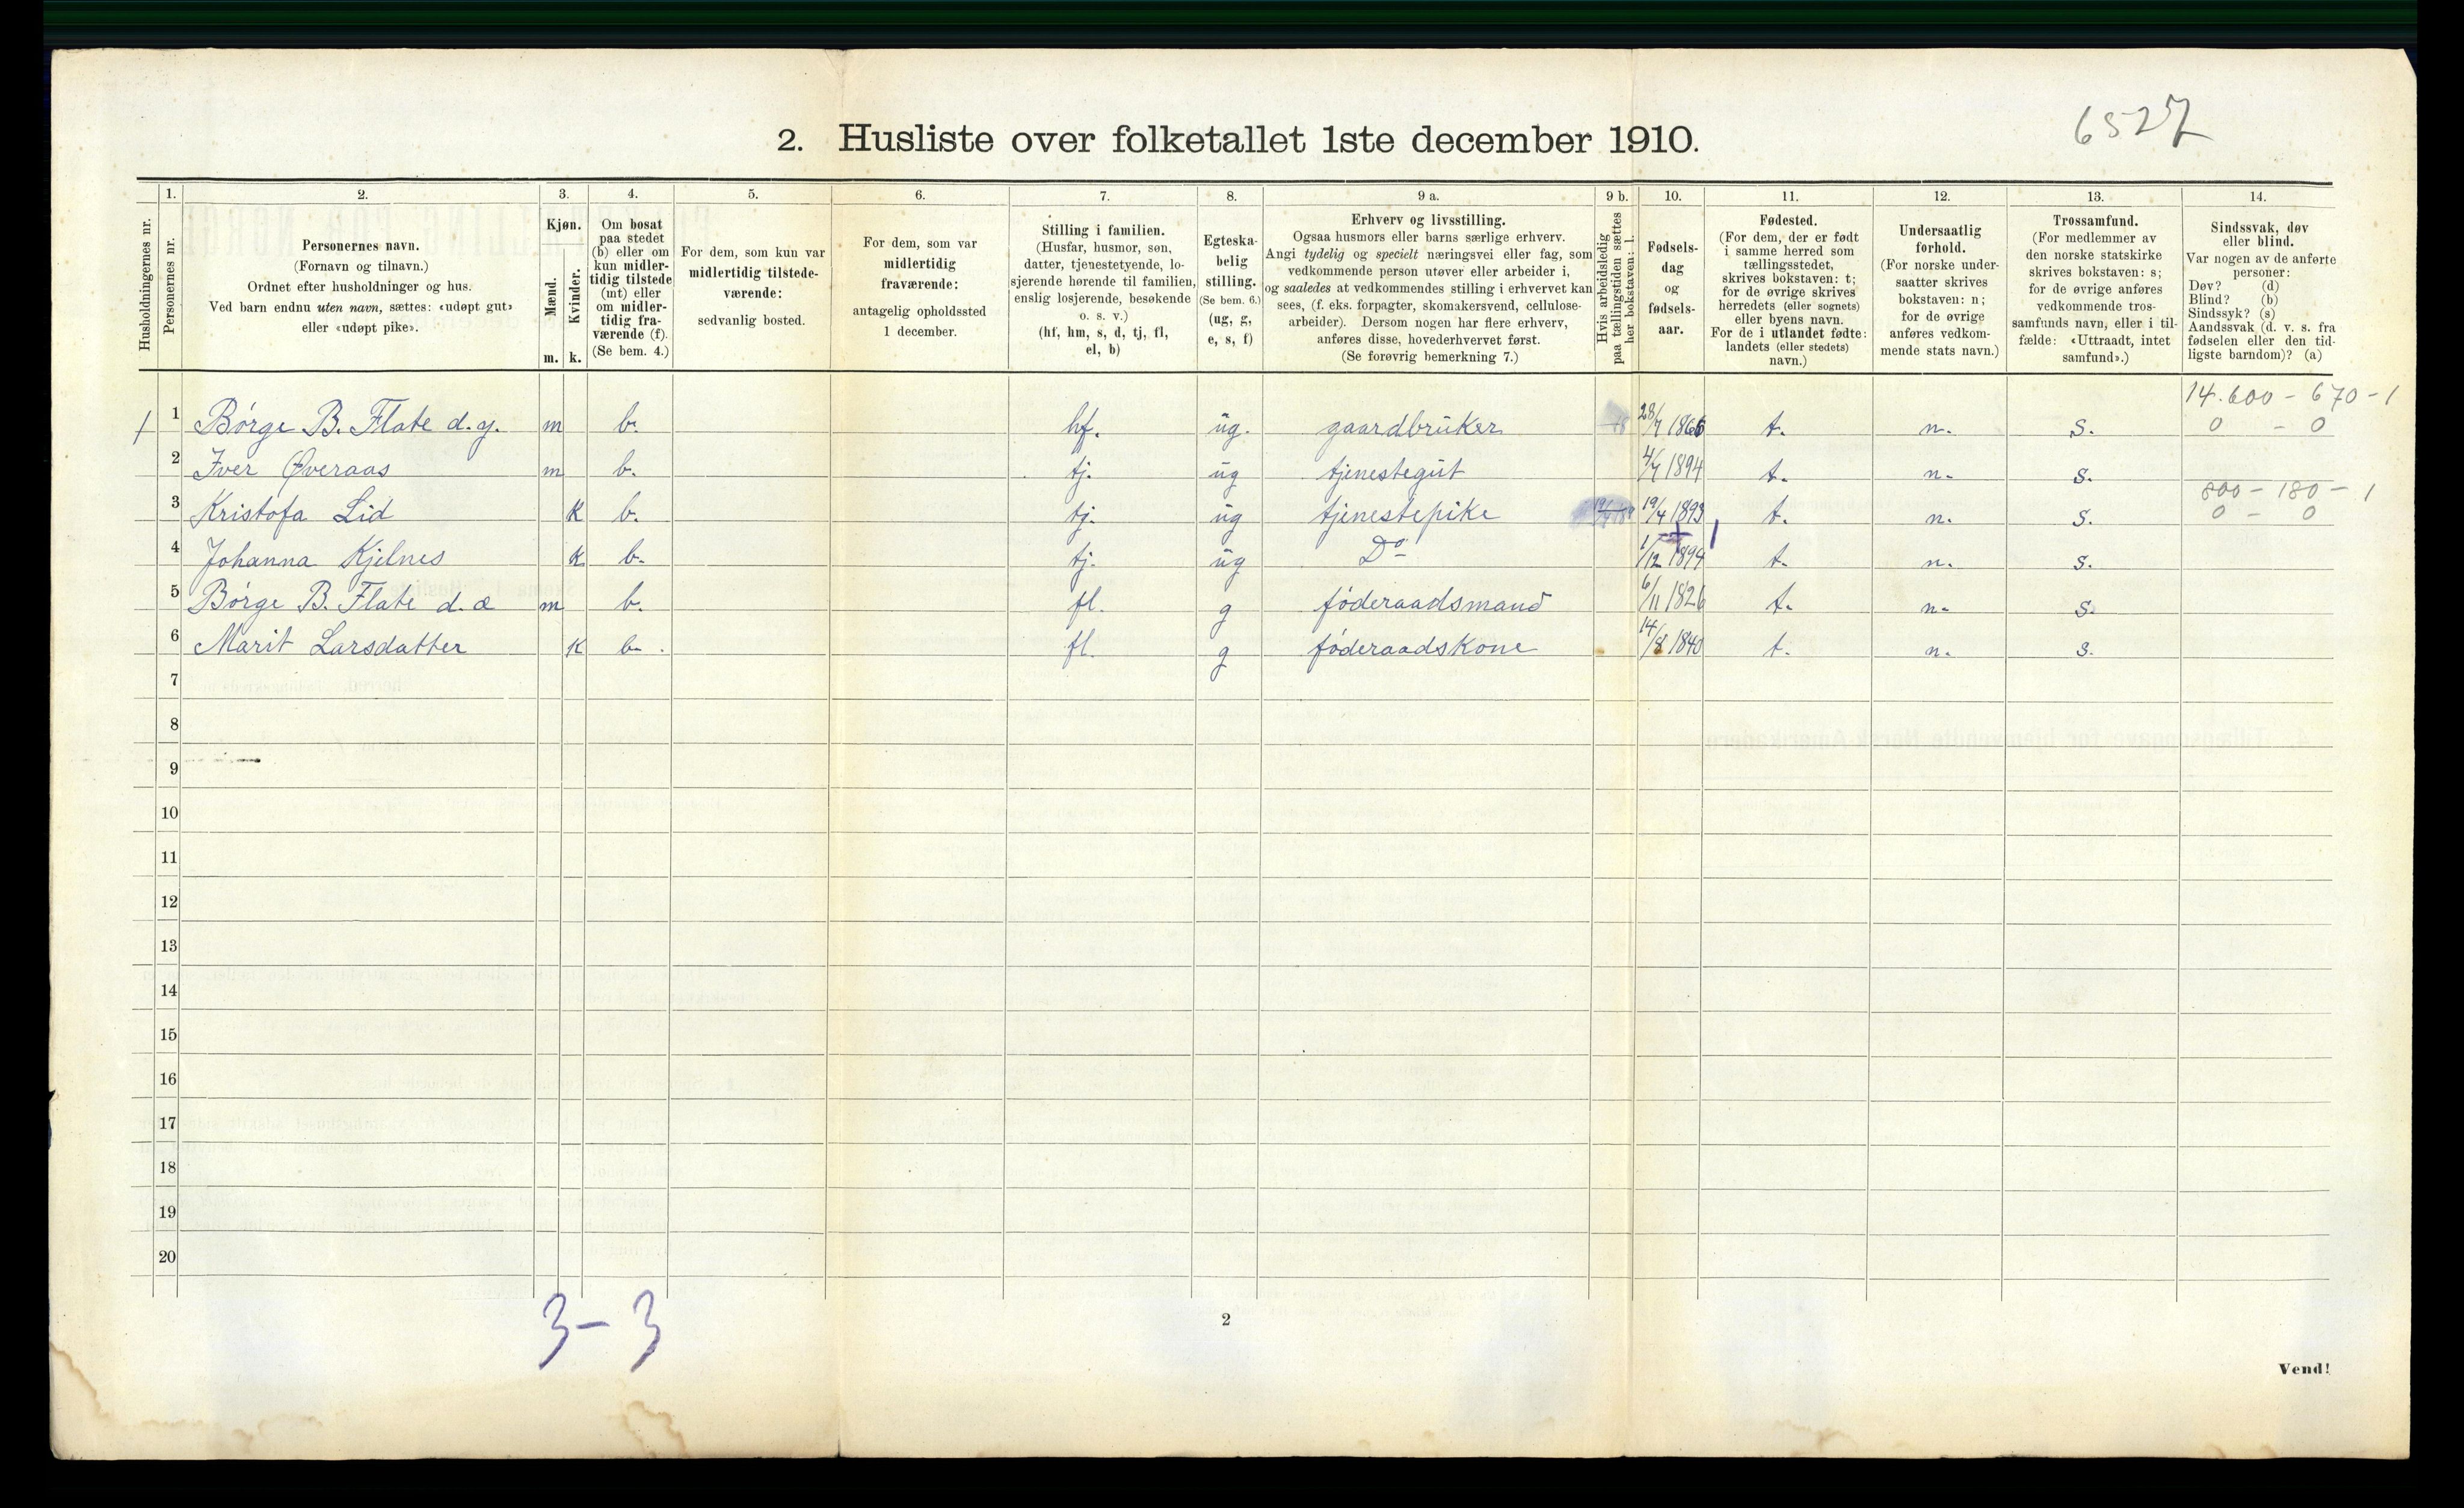 6527
2. Husliste over folketallet 1ste december 1910.
Husholdningernes nr.
1.
Personernes nr.
2.
Personernes navn.
(Fornavn og tilnavn.)
Ordnet efter husholdninger og hus.
Ved barn endnu uten navn, sættes: «udøpt gut»
eller «udøpt pike».
3.
Kjøn.
Mænd.
m.
Kvinder.
k.
4.
Om bosat
paa stedet
(b) eller om
kun midler-
tidig tilstede
(mt) eller
om midler-
tidig fra-
værende (f).
(Se bem. 4.)
5.
For dem, som kun var
midlertidig tilstede-
værende:
sedvanlig bosted.
6.
For dem, som var
midlertidig
fraværende:
antagelig opholdssted
1 december.
7.
Stilling i familien.
(Husfar, husmor, søn,
datter, tjenestetyende, lo-
sjerende hørende til familien,
enslig losjerende, besøkende
o. s. v.)
(hf, hm, s, d, tj, fl,
el, b)
8.
Egteska-
belig
stilling.
(Se bem. 6.)
(ug, g,
e, s, f)
9 a.
Erhverv og livsstilling.
Ogsaa husmors eller barns særlige erhverv.
Angi tydelig og specielt næringsvei eller fag, som
vedkommende person utøver eller arbeider i,
og saaledes at vedkommendes stilling i erhvervet kan
sees, (f. eks. forpagter, skomakersvend, cellulose-
arbeider). Dersom nogen har flere erhverv,
anføres disse, hovederhvervet først.
(Se forøvrig bemerkning 7.)
9 b.
Hvis arbeidsledig
paa tællingstiden sættes
her bokstaven: l.
10.
Fødsels-
dag
og
fødsels-
aar.
11.
Fødested.
(For dem, der er født
i samme herred som
tællingsstedet,
skrives bokstaven: t;
for de øvrige skrives
herredets (eller sognets)
eller byens navn.
For de i utlandet fødte:
landets (eller stedets)
navn.)
12.
Undersaatlig
forhold.
(For norske under-
saatter skrives
bokstaven: n;
for de øvrige
anføres vedkom-
mende stats navn.)
13.
Trossamfund.
(For medlemmer av
den norske statskirke
skrives bokstaven: s;
for de øvrige anføres
vedkommende tros-
samfunds navn, eller i til-
fælde: «Uttraadt, intet
samfund».)
14.
Sindssvak, døv
eller blind.
Var nogen av de anførte
personer:
Døv? (d)
Blind? (b)
Sindssyk? (s)
Aandssvak (d. v. s. fra
fødselen eller den tid-
ligste barndom)? (a)
14.600 - 670 - 1
1 Børge B. Flate d.y. m b. hf. ug. gaardbruker 28/7 1866 t. n. s. 0 - 0
2 Iver Øveraas m b. tj. ug tjenestegut 4/7 1894 t. n. s.
800 - 180 - 1
3 Kristofa Lid k b. tj. ug tjenestepike 19/4 1893 t. n. s. 0 - 0
4 Johanna Kjelnes k b. tj. ug Do 1/12 1894 t. n. s.
5 Børge B. Flate d. æ m b. fl. g føderaadsmand 6/11 1826 t. n. s.
6 Marit Larsdatter k b. fl. g føderaadskone 14/8 1840 t. n. s.
7
8
9
10
11
12
13
14
15
16
17
18
19
20
3 - 3
2
Vend!